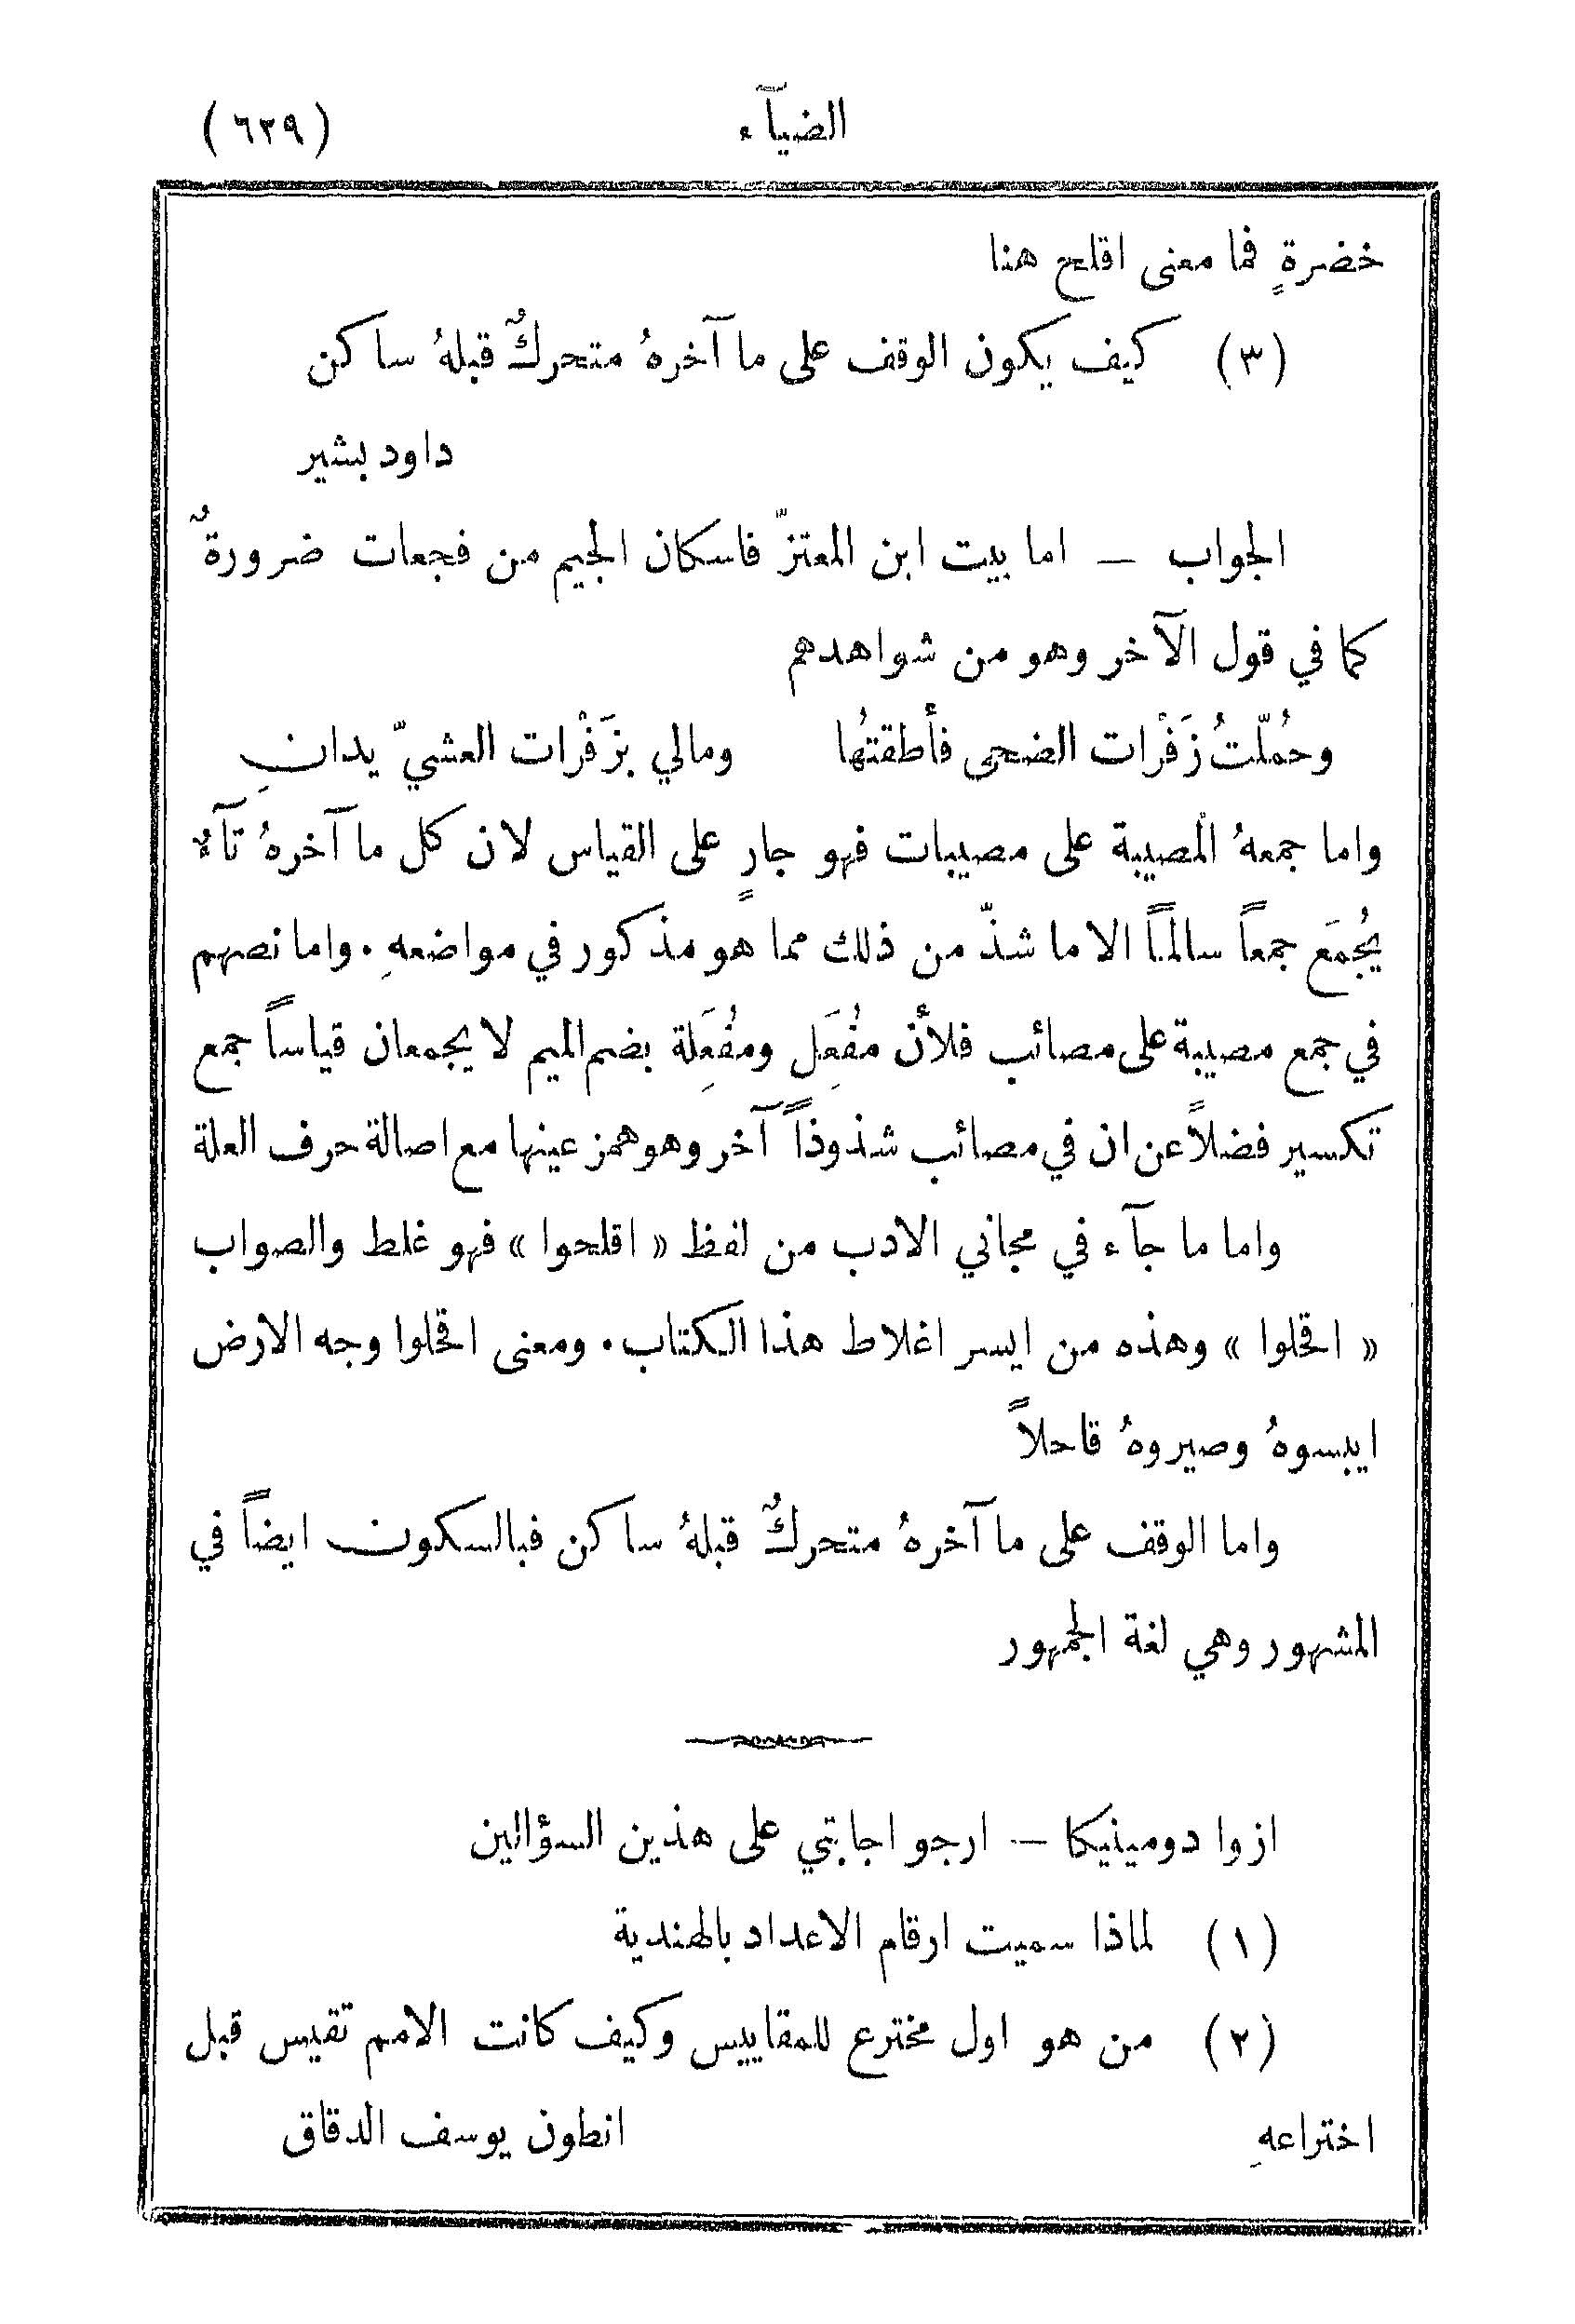 الضيآء (٦٣٩)
خضرةٍ فما معنى اقلح هنا
(٣) كيف يكون الوقف على ما آخرهُ متحركٌ قبلهُ ساكن
داود بشير
الجواب — اما بيت ابن المعتزّ فاسكان الجيم من فجعات ضرورةٌ
كما في قول الآخر وهو من شواهدهم
وحُمّلتُ زَفْرات الضحى فأطقتُها ومالي بزَفْرات العشيّ يدانِ
واما جمعهُ المصيبة على مصيبات فهو جارٍ على القياس لان كل ما آخرهُ تآءٌ
يُجمَع جمعاً سالماً الا ما شذّ من ذلك مما هو مذكور في مواضعهِ . واما نصهم
في جمع مصيبة على مصائب فلأن مفُعِل ومفُعِلة بضم الميم لا يجمعان قياساً جمع
تكسير فضلاً عن ان في مصائب شذوذاً آخر وهو همز عينها مع اصالة حرف العلة
واما ما جآء في مجاني الادب من لفظ « اقلحوا » فهو غلط والصواب
« اقحلوا » وهذه من ايسر اغلاط هذا الكتاب . ومعنى اقحلوا وجه الارض
ايبسوهُ وصيروهُ قاحلاً
واما الوقف على ما آخرهُ متحركٌ قبلهُ ساكن فبالسكون ايضاً في
المشهور وهي لغة الجمهور
ازوا دومينيكا — ارجو اجابتي على هذين السؤالين
(١) لماذا سميت ارقام الاعداد بالهندية
(٢) من هو اول مخترع للمقاييس وكيف كانت الامم تقيس قبل
اختراعهِ انطون يوسف الدقاق